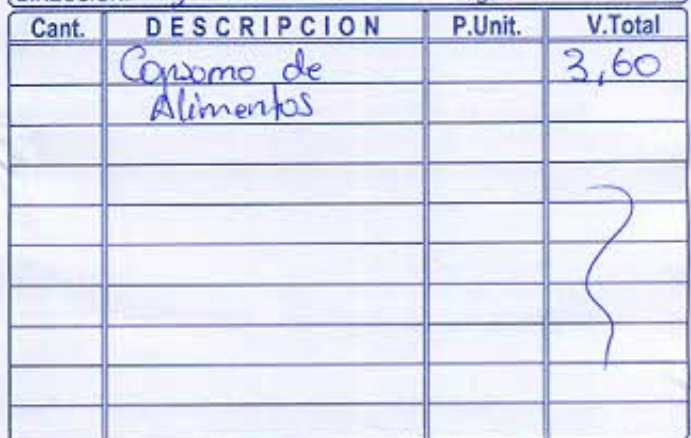 Cant. DESCRIPCION P.Unit. V.Total
Consomo de 3,60
Alimentos